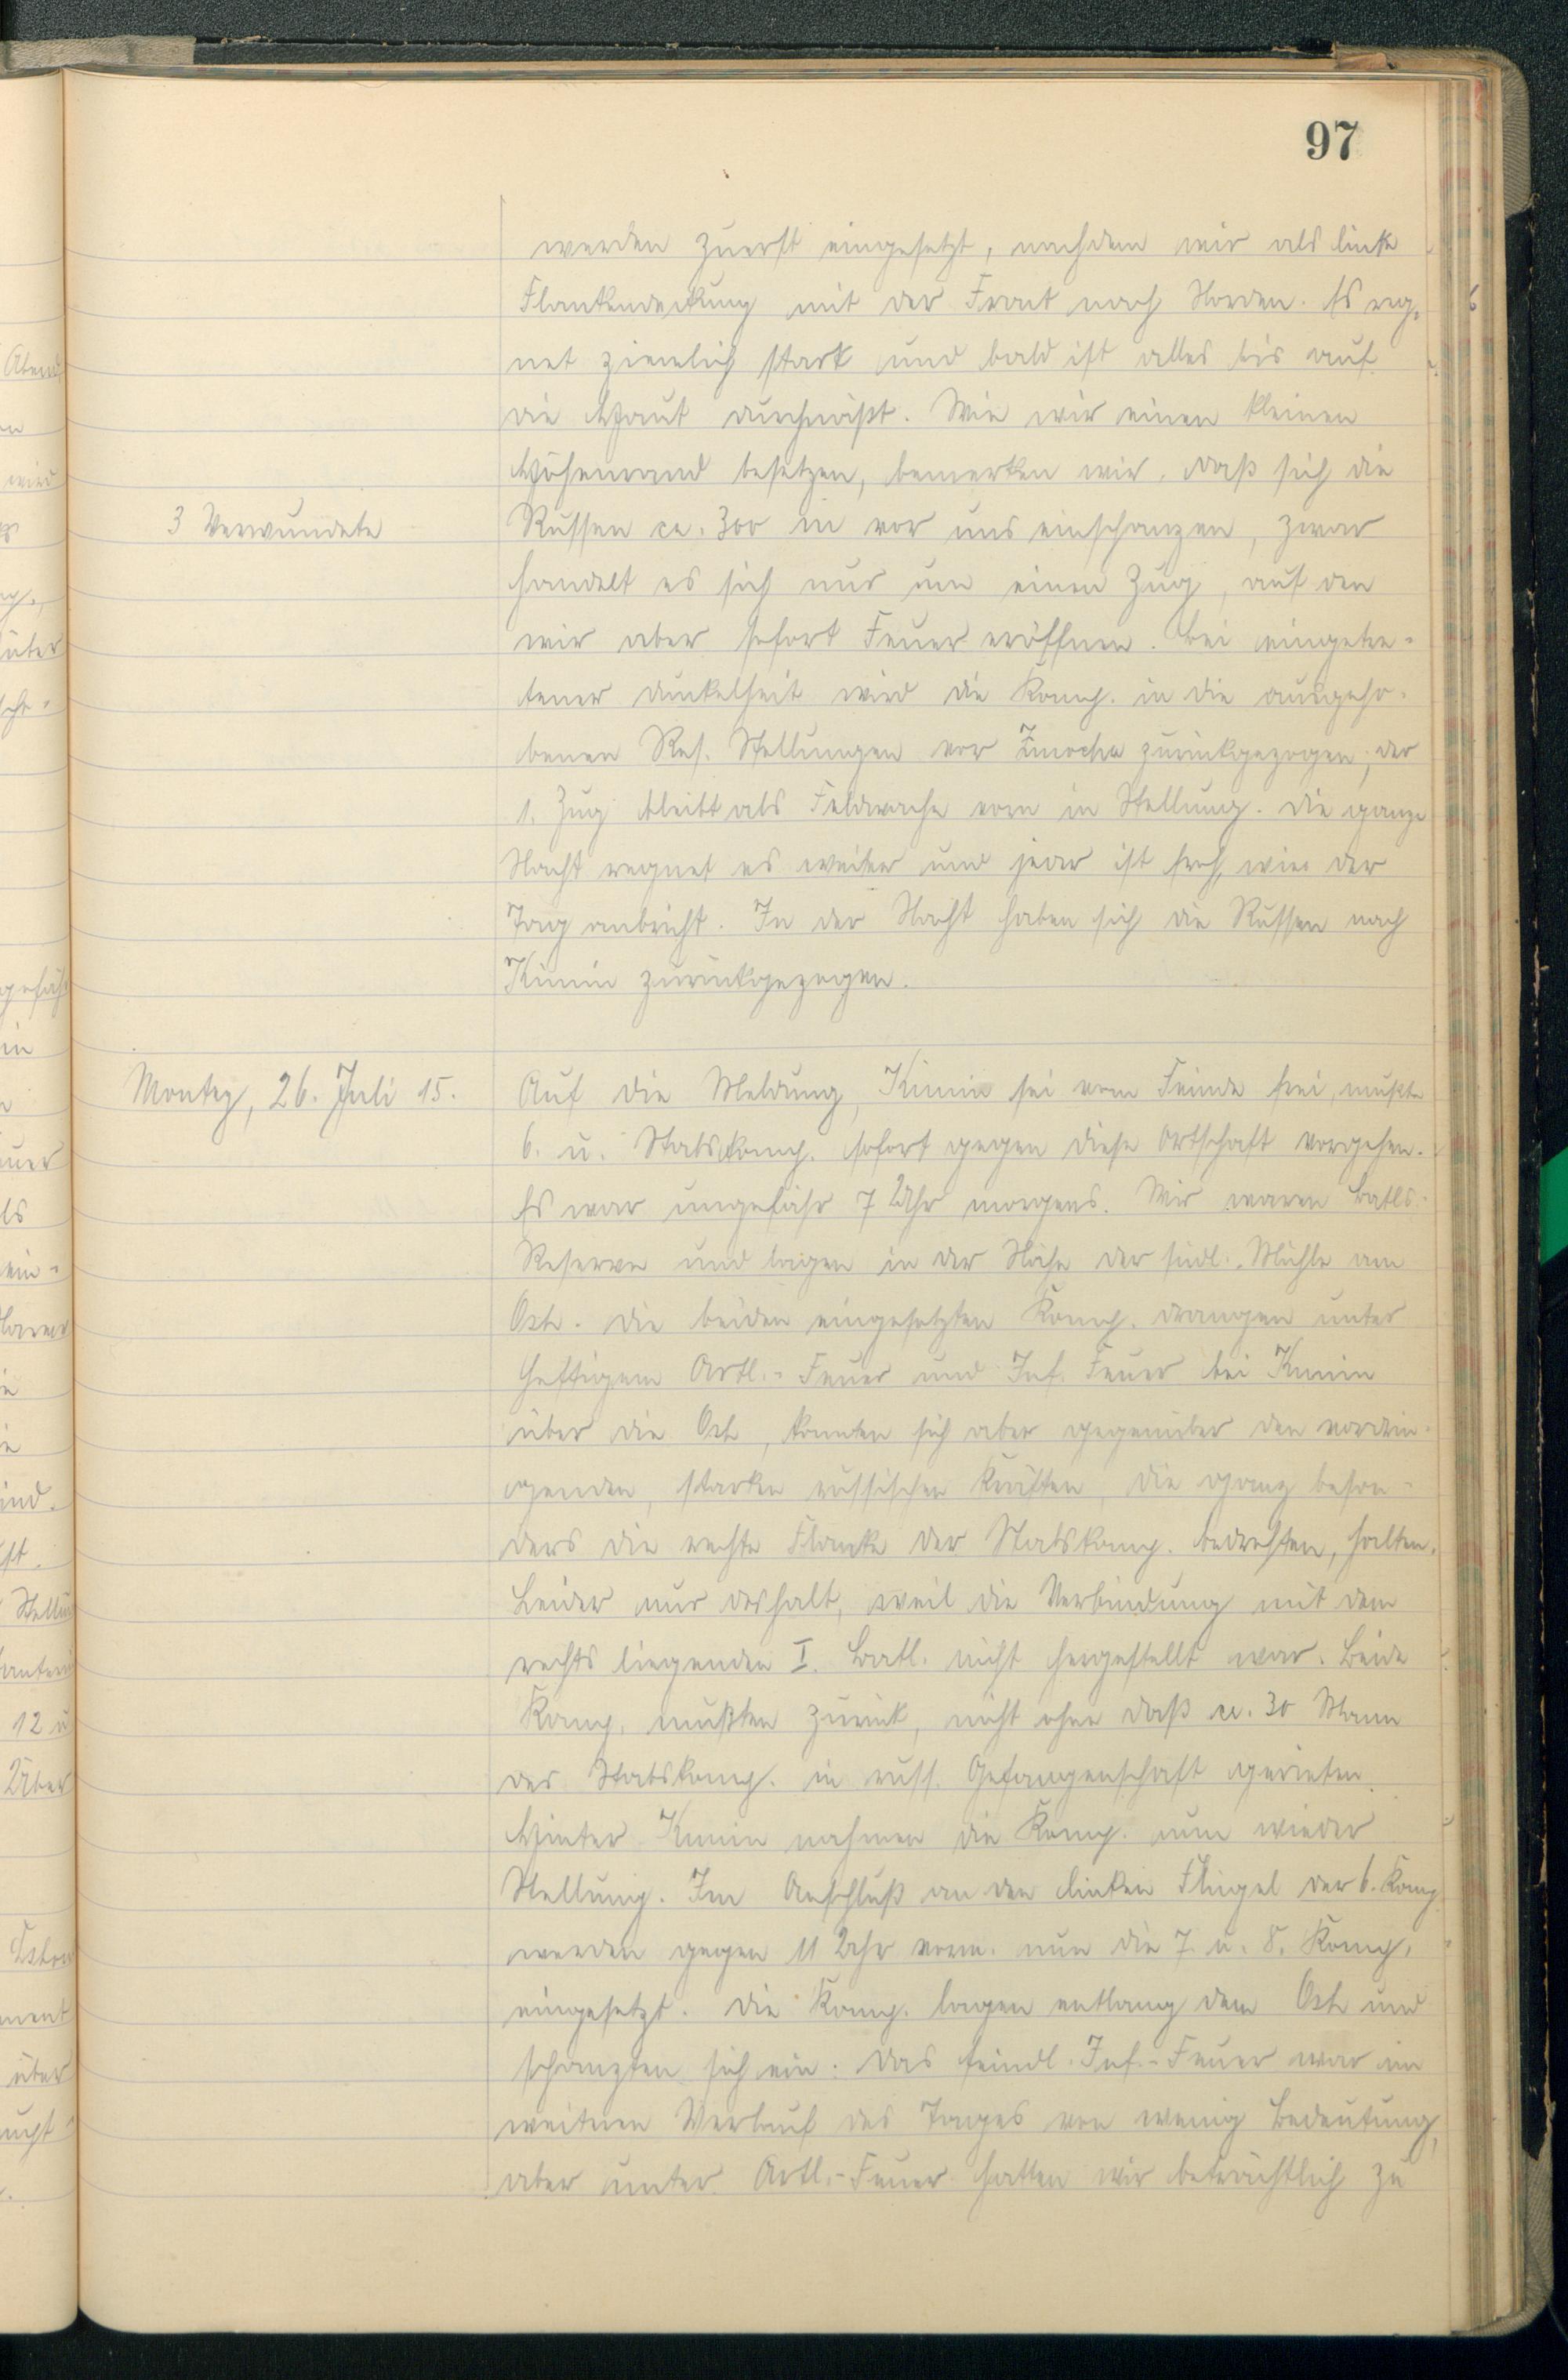 97
werden zuerst eingesetzt, nachdem wir als linke
Flankendeckung mit der Front nach Norden. Es reg-
net ziemlich stark und bald ist alles bis auf
die Haut durchnäßt. Wie wir einen kleinen
Höhenrand besetzen, bemerken wir, daß sich die
3 Verwundete
Russen ca. 300 m vor uns einschanzen, zwar
handelt es sich nur um einen Zug, auf den
wir aber sofort Feuer eröffnen. Bei eingetre-
tener Dunkelheit wird die Komp. in die ausgeho-
benen Res. Stellungen vor zurückgezogen; der
1. Zug bleibt als Feldwache vorn in Stellung. Die ganze
Nacht regnet es weiter und jeder ist froh, wie der
Tag anbricht. In der Nacht haben sich die Russen nach
Kunin zurückgezogen.
Montag, 26. Juli 15.
Auf die Meldung, Kunin sei vom Feinde frei, mußte
6. u. Stabskomp. sofort gegen diese Ortschaft vorgehen.
Es war ungefähr 7 Uhr morgens. Wir waren Batls.
Reserve und lagen in der Nähe der südl. Mühle am
Osh. Die beiden eingesetzten Komp. drangen unter
heftigem Artl.-Feuer und Inf. Feuer bei Kunin
über die Osh, konnten sich aber gegenüber den vordrin-
genden, starken russischen Kräften, die ganz beson-
ders die rechte Flanke der Stabskomp. bedrohten, halten.
Leider nur deshalb, weil die Verbindung mit dem
rechts liegenden I. Batl. nicht hergestellt war. Beide
Komp. mußten zurück, nicht ohne daß ca. 30 Mann
der Stabskomp. in russ. Gefangenschaft gerieten.
Hinter Kunin nahmen die Komp. nun wieder
Stellung. Im Anschluß an den linken Flügel der 6. Komp
werden gegen 11 Uhr vorm. nun die 7. u. 8. Komp.
eingesetzt. Die Komp. lagen entlang dem Osh und
schanzten sich ein. Das feindl. Inf.-Feuer war im
weiteren Verlauf des Tages von wenig Bedeutung,
aber unter Artl.-Feuer hatten wir beträchtlich zu